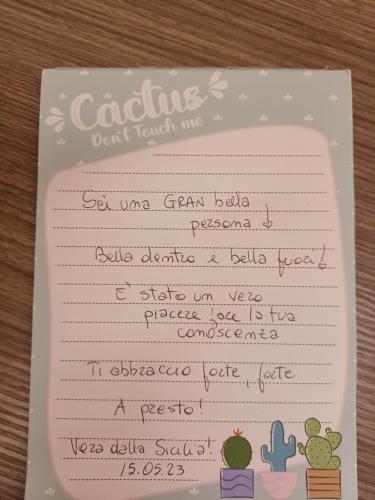 Cactus
Don't Touch me
Sei una GRAN bella
persona!
Bella dentro e bella fuori!
E' stato un vero
piacere fare la tua
conoscenza
Ti abbraccio forte, forte
A presto!
Vera dalla Sicilia!
15.05.23